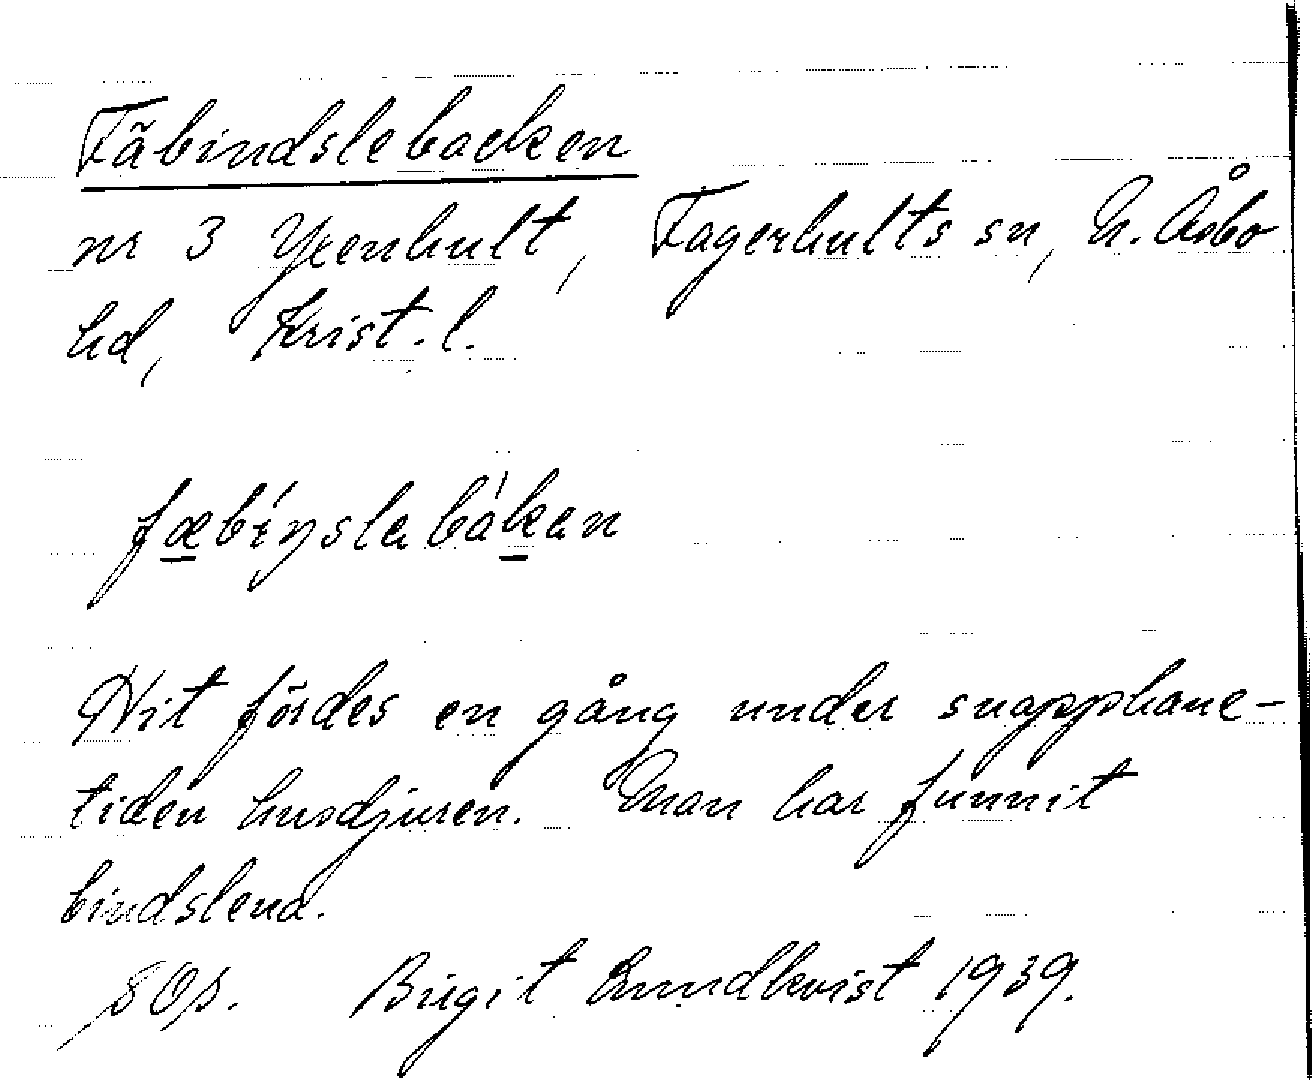 Fäbindslebacken
nr 3 Yxenhult, Fagerhults sn, N. Åsbo
hd, Krist. l.
Hit fördes en gång under snapphane-
tiden husdjuren. Man har funnit
bindslena.
Birgit Lundkvist 1939.